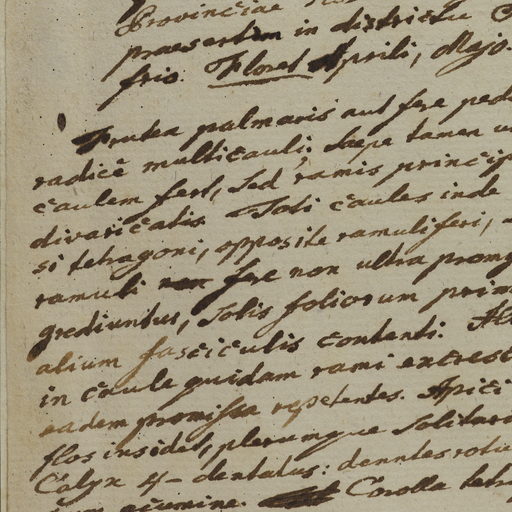 Provinciae
praesertim in districtu
frio. Floret Aprili, Majo.
Frutex palmaris aut fere ped
radicè multicauli: saepe tamen u
caulem fert, sed ramis princip
divaricatis. Toti caules inde
si tetragoni, opposite ramuliferi,
ramuli non fere non ultra prom
grediuntur, solis foliorum prim
alium fasciculis contenti. Al
in caule quidam rami excresc
eadem promissa repetentes. Apici
flos insidet, plerumque solitari
Calyx 4-dentatus: denntes rotu
acumine. Corolla tetr